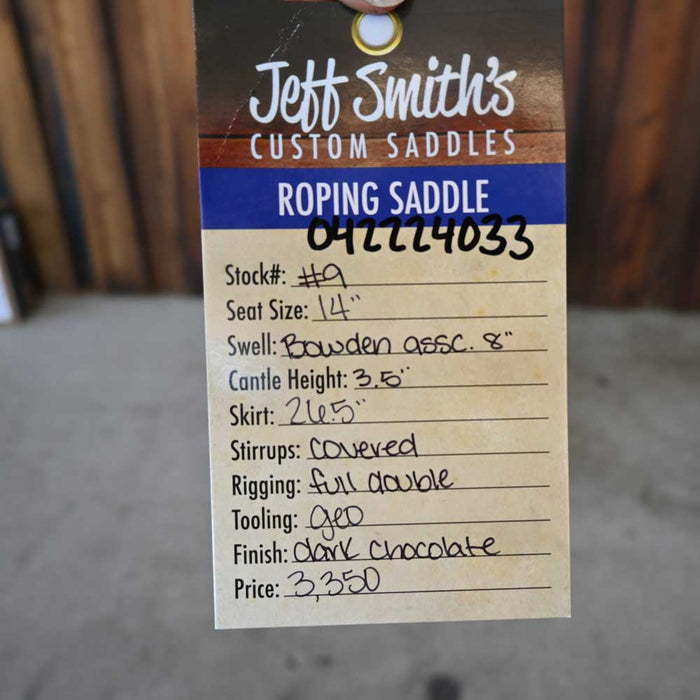 Jeff Smith's
CUSTOM SADDLES
ROPING SADDLE
042224033
Stock#: #9
Seat Size: 14"
Swell: Bowden assc. 8"
Cantle Height: 3.5"
Skirt: 26.5"
Stirrups: covered
Rigging: full double
Tooling: geo
Finish: dark chocolate
Price: 3,350